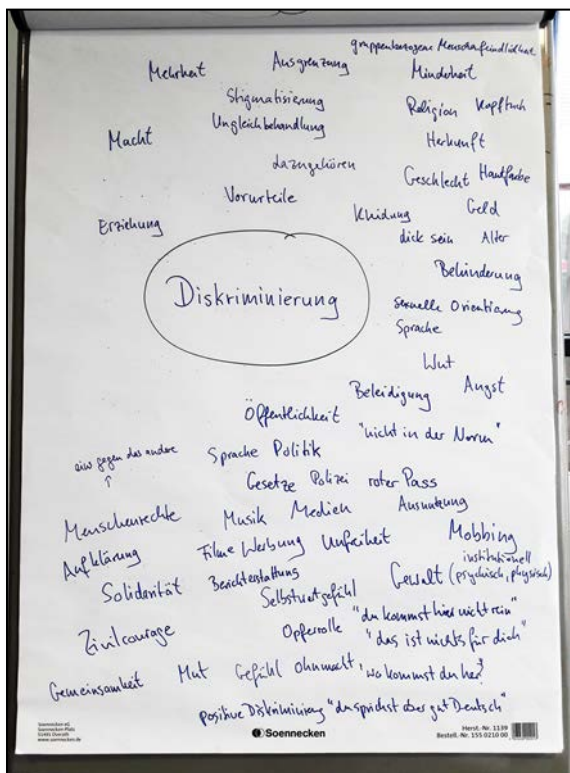 gruppenbezogene Menschenfeindlichkeit
Mehrheit Ausgrenzung Minderheit
Stigmatisierung Religion Kopftuch
Macht Ungleichbehandlung Herkunft
dazugehören Geschlecht Hautfarbe
Vorurteile Kleidung Geld
Erziehung dick sein Alter
Behinderung
Diskriminierung
sexuelle Orientierung
Sprache
Wut
Beleidigung Angst
Öffentlichkeit "nicht in der Norm"
eins gegen das andere Sprache Politik
↑
Gesetze Polizei roter Pass
Menschenrechte Musik Medien Ausnutzung
Aufklärung Filme Werbung Unfreiheit Mobbing
institutionell
Solidarität Berichterstattung Gewalt (psychisch, physisch)
Selbstwertgefühl
"du kommst hier nicht rein"
Zivilcourage Opferrolle "das ist nichts für dich"
Gemeinsamkeit Mut Gefühl ohnmacht "wo kommst du her?
positive Diskriminierung "du sprichst aber gut Deutsch"
Soennecken eG
Soennecken-Platz
51491 Overath
www.soennecken.de
Soennecken
Herst.-Nr. 1139
Bestell.-Nr. 155 0210 00